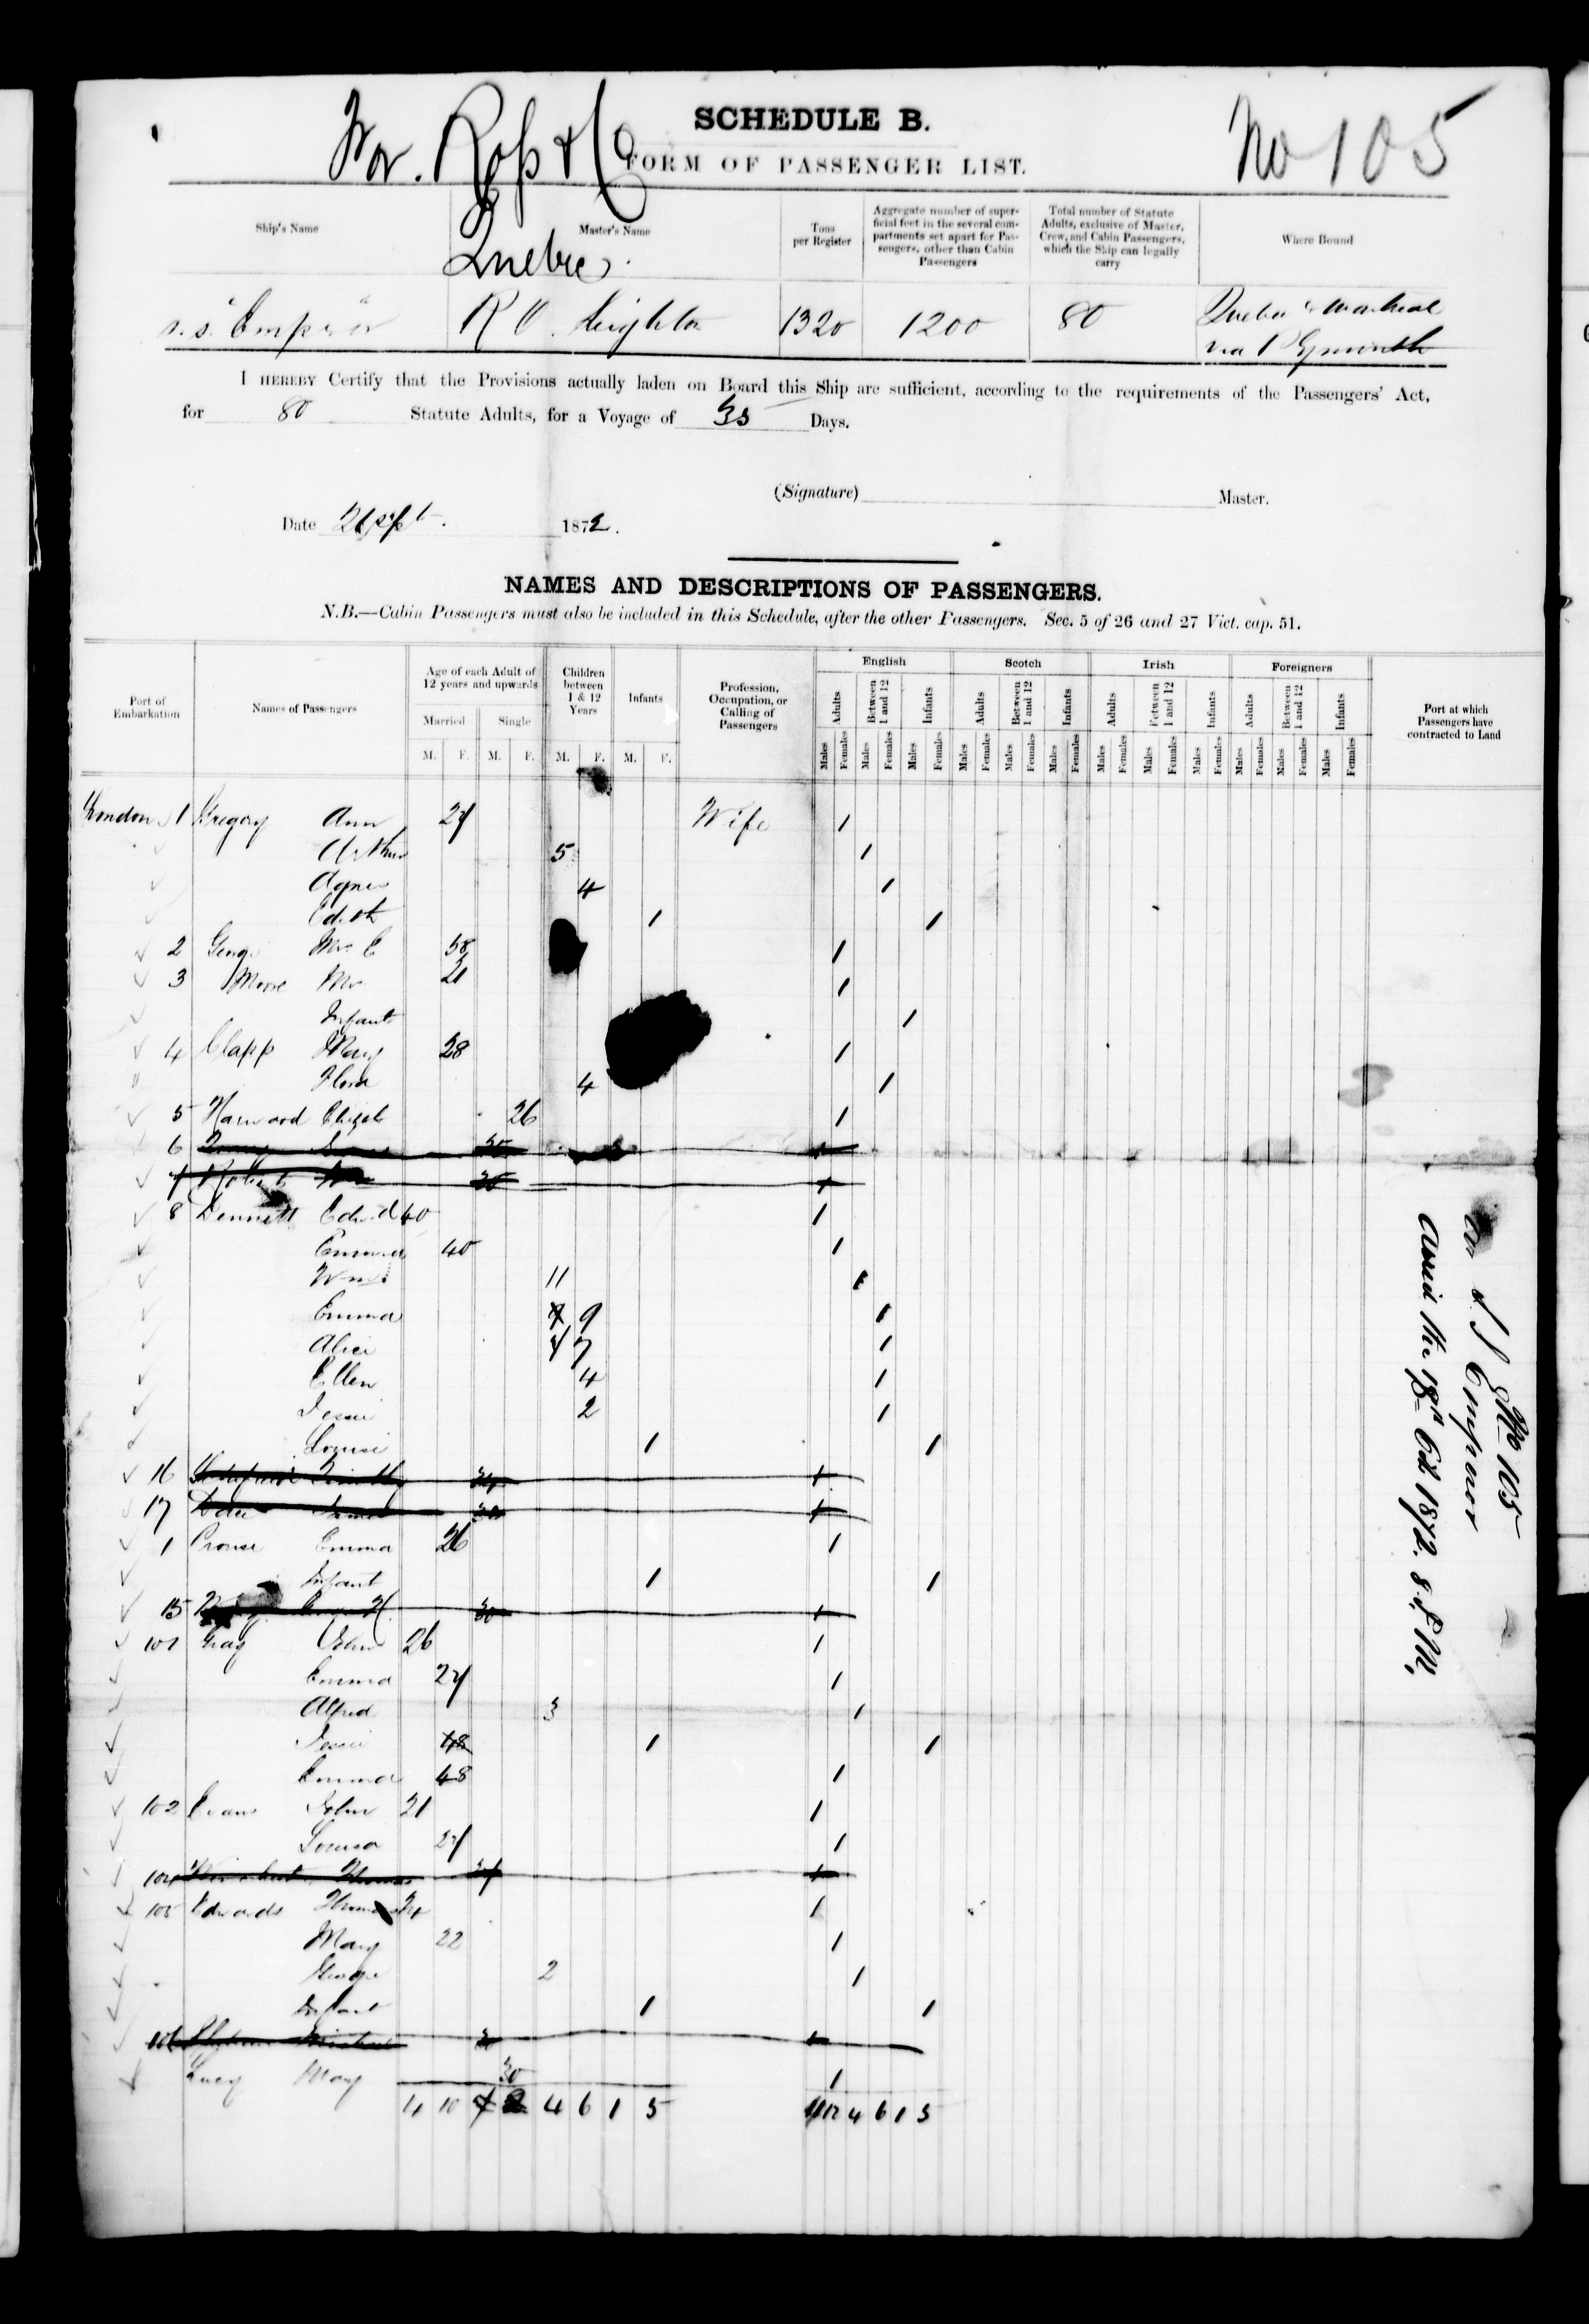 SCHEDULE B.
Wm. Ross & Co
No 105
FORM OF PASSENGER LIST.
Quebec.
Ship's Name
Master's Name
Tons per Register
Aggregate number of superficial feet in the several compartments set apart for Passengers, other than Cabin Passengers
Total number of Statute Adults, exclusive of Master, Crew, and Cabin Passengers, which the Ship can legally carry
Where Bound
s.s. "Emperor" R O Leighton 1320 1200 80 Quebec & Montreal
via Plymouth
I HEREBY Certify that the Provisions actually laden on Board this Ship are sufficient, according to the requirements of the Passengers' Act,
for 80 Statute Adults, for a Voyage of 35 Days.
(Signature) Master.
Date 21 Sept. 1872.
NAMES AND DESCRIPTIONS OF PASSENGERS.
N.B.—Cabin Passengers must also be included in this Schedule, after the other Passengers. Sec. 5 of 26 and 27 Vict. cap. 51.
Port of Embarkation
Names of Passengers
Age of each Adult of 12 years and upwards
Married Single
M. F. M. F.
Children between 1 & 12 Years
M. F.
Infants
M. F.
Profession, Occupation, or Calling of Passengers
English Scotch Irish Foreigners
Adults Between 1 and 12 Infants Adults Between 1 and 12 Infants Adults Between 1 and 12 Infants Adults Between 1 and 12 Infants
Males Females Males Females Males Females Males Females Males Females Males Females Males Females Males Females Males Females Males Females Males Females Males Females
Port at which Passengers have contracted to Land
London 1 Gregory Ann 27 Wife 1
Arthur 5 1
Agnes 4 1
Edith 1 1
2 George Mrs E 58 1
3 Morse Mrs 21 1
Infant 1
4 Clapp Mary 28 1
Flora 4 1
5 Harwood Elizab 26 1
6 30 1
7 Robert 30 1
8 Dennett Edwd 40 1
Emma 40 1
Wm 11 1
Emma 9 1
Alice 7 1
Ellen 4 1
Jessie 2 1
Louisa 1 1
16 1
17 1
1 Prouse Emma 26 1
Infant 1 1
15 30 1
101 Gray John 26 1
Emma 27 1
Alfred 3 1
Jessie 48 1 1
Emma 48 1
102 Evans John 21 1
Louisa 27 1
104 Thomas 1
105 Edwards Thomas 24 1
Mary 22 1
George 2 1
Infant 1 1
106 1
Lucy Mary 30 1
4 10 4 6 1 5 12 4 6 1 5
No 105
S S Emperor
Arrived the 13th Oct 1872. 8. P.M,